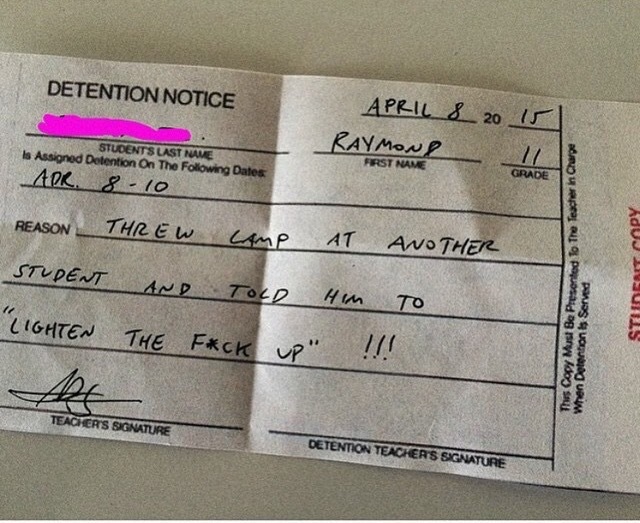 DETENTION NOTICE
APRIL 8 20 15
STUDENT'S LAST NAME
RAYMOND 11
FIRST NAME GRADE
Is Assigned Detention On The Following Dates:
APR. 8-10
REASON THREW LAMP AT ANOTHER
STUDENT AND TOLD HIM TO
"LIGHTEN THE F*CK UP" !!!
TEACHER'S SIGNATURE
DETENTION TEACHER'S SIGNATURE
This Copy Must Be Presented To The Teacher in Charge
When Detention Is Served.
STUDENT COPY